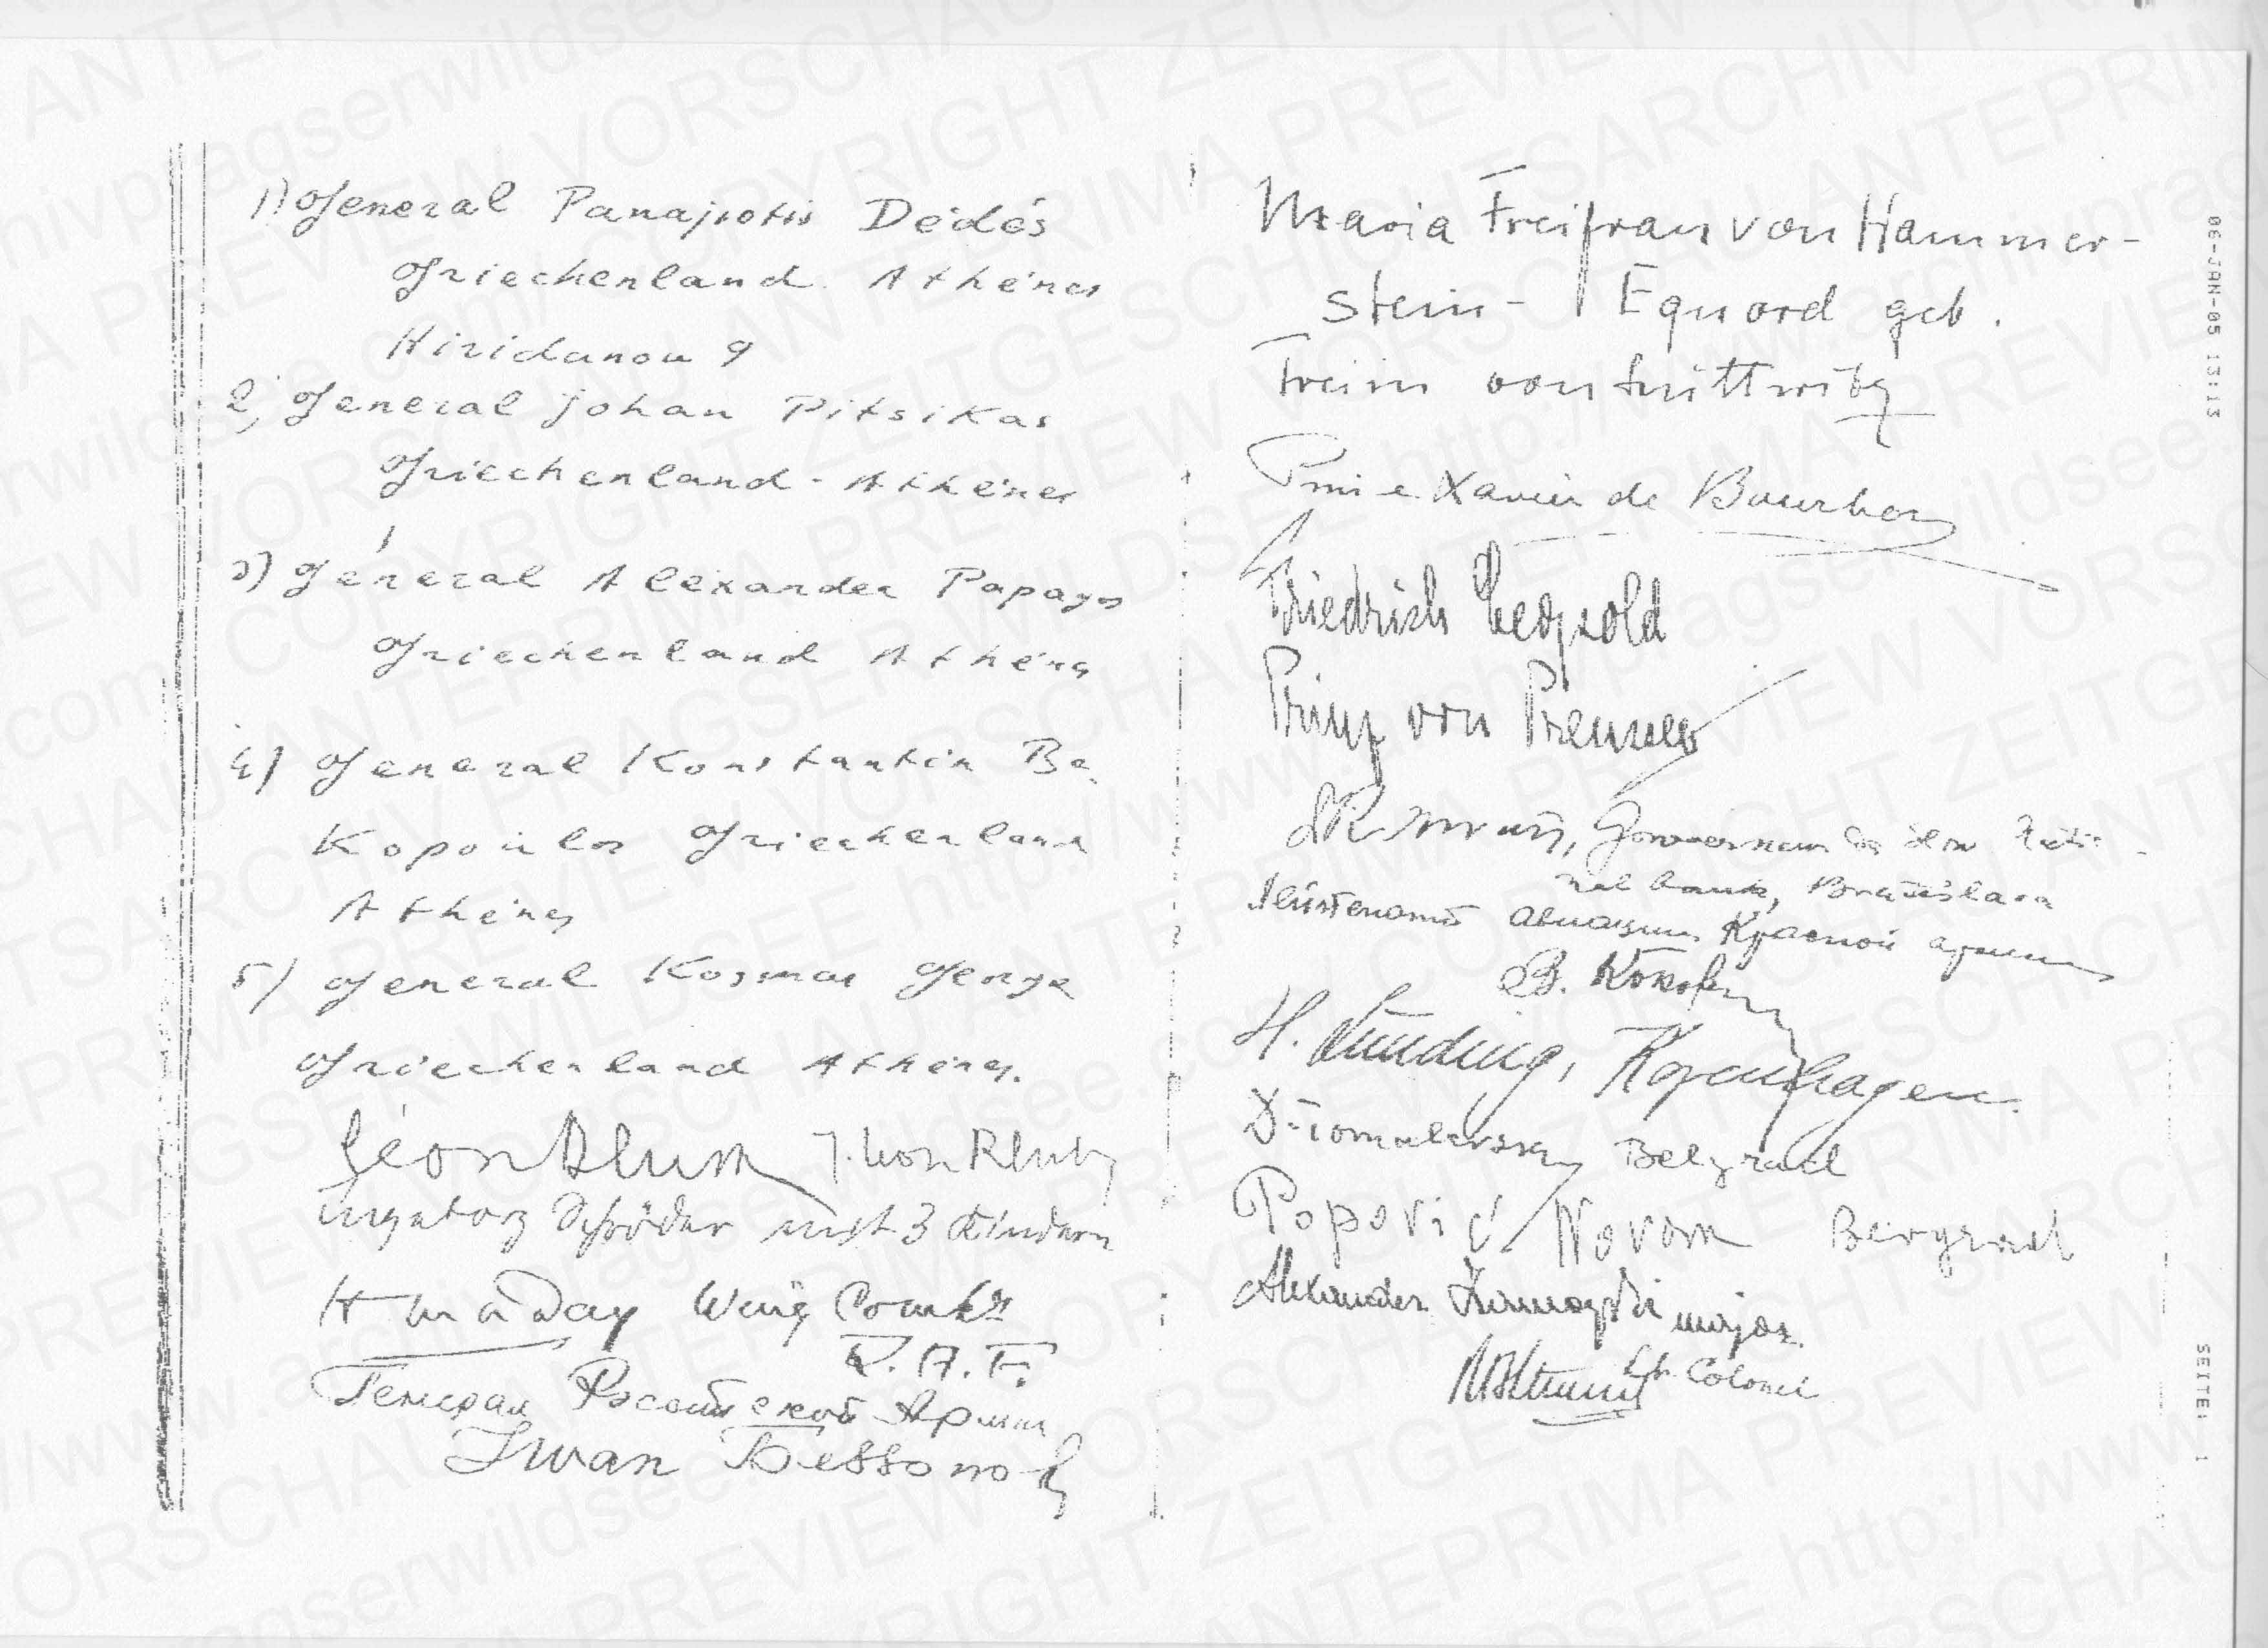 1) General Panajiotis Dédés
Griechenland Athénes
Hiridanou 9
2) General Johan Pitsikas
Griechenland - Athénes
3) Général Alexander Papagos
Griechenland Athénes
4) General Konstantin Ba
Kopoulos Griechenland
Athénes
5) General Kosmas George
Griechenland Athénes.
Léon Blum J. Léon Blum
Ingeborg Schröder mit 3 Kindern
H M A Day Wing Comdr
R.A.F.
Генерал Российской Армии
Iwan Bessonoff
Maria Freifrau von Hammer-
stein- Equord geb.
Freiin von Lüttwitz
Prince Xavier de Bourbon
Friedrich Leopold
Prinz von Preussen
Gouverneur der
bank, Bratislava
авиации Красной армии
В. Кокорин
H. Lunding, Kopenhagen.
Belgrad
Popović Novak Beograd
Alexander major
Lt. Colonel
06-JAN-05 13:13
SEITE: 1